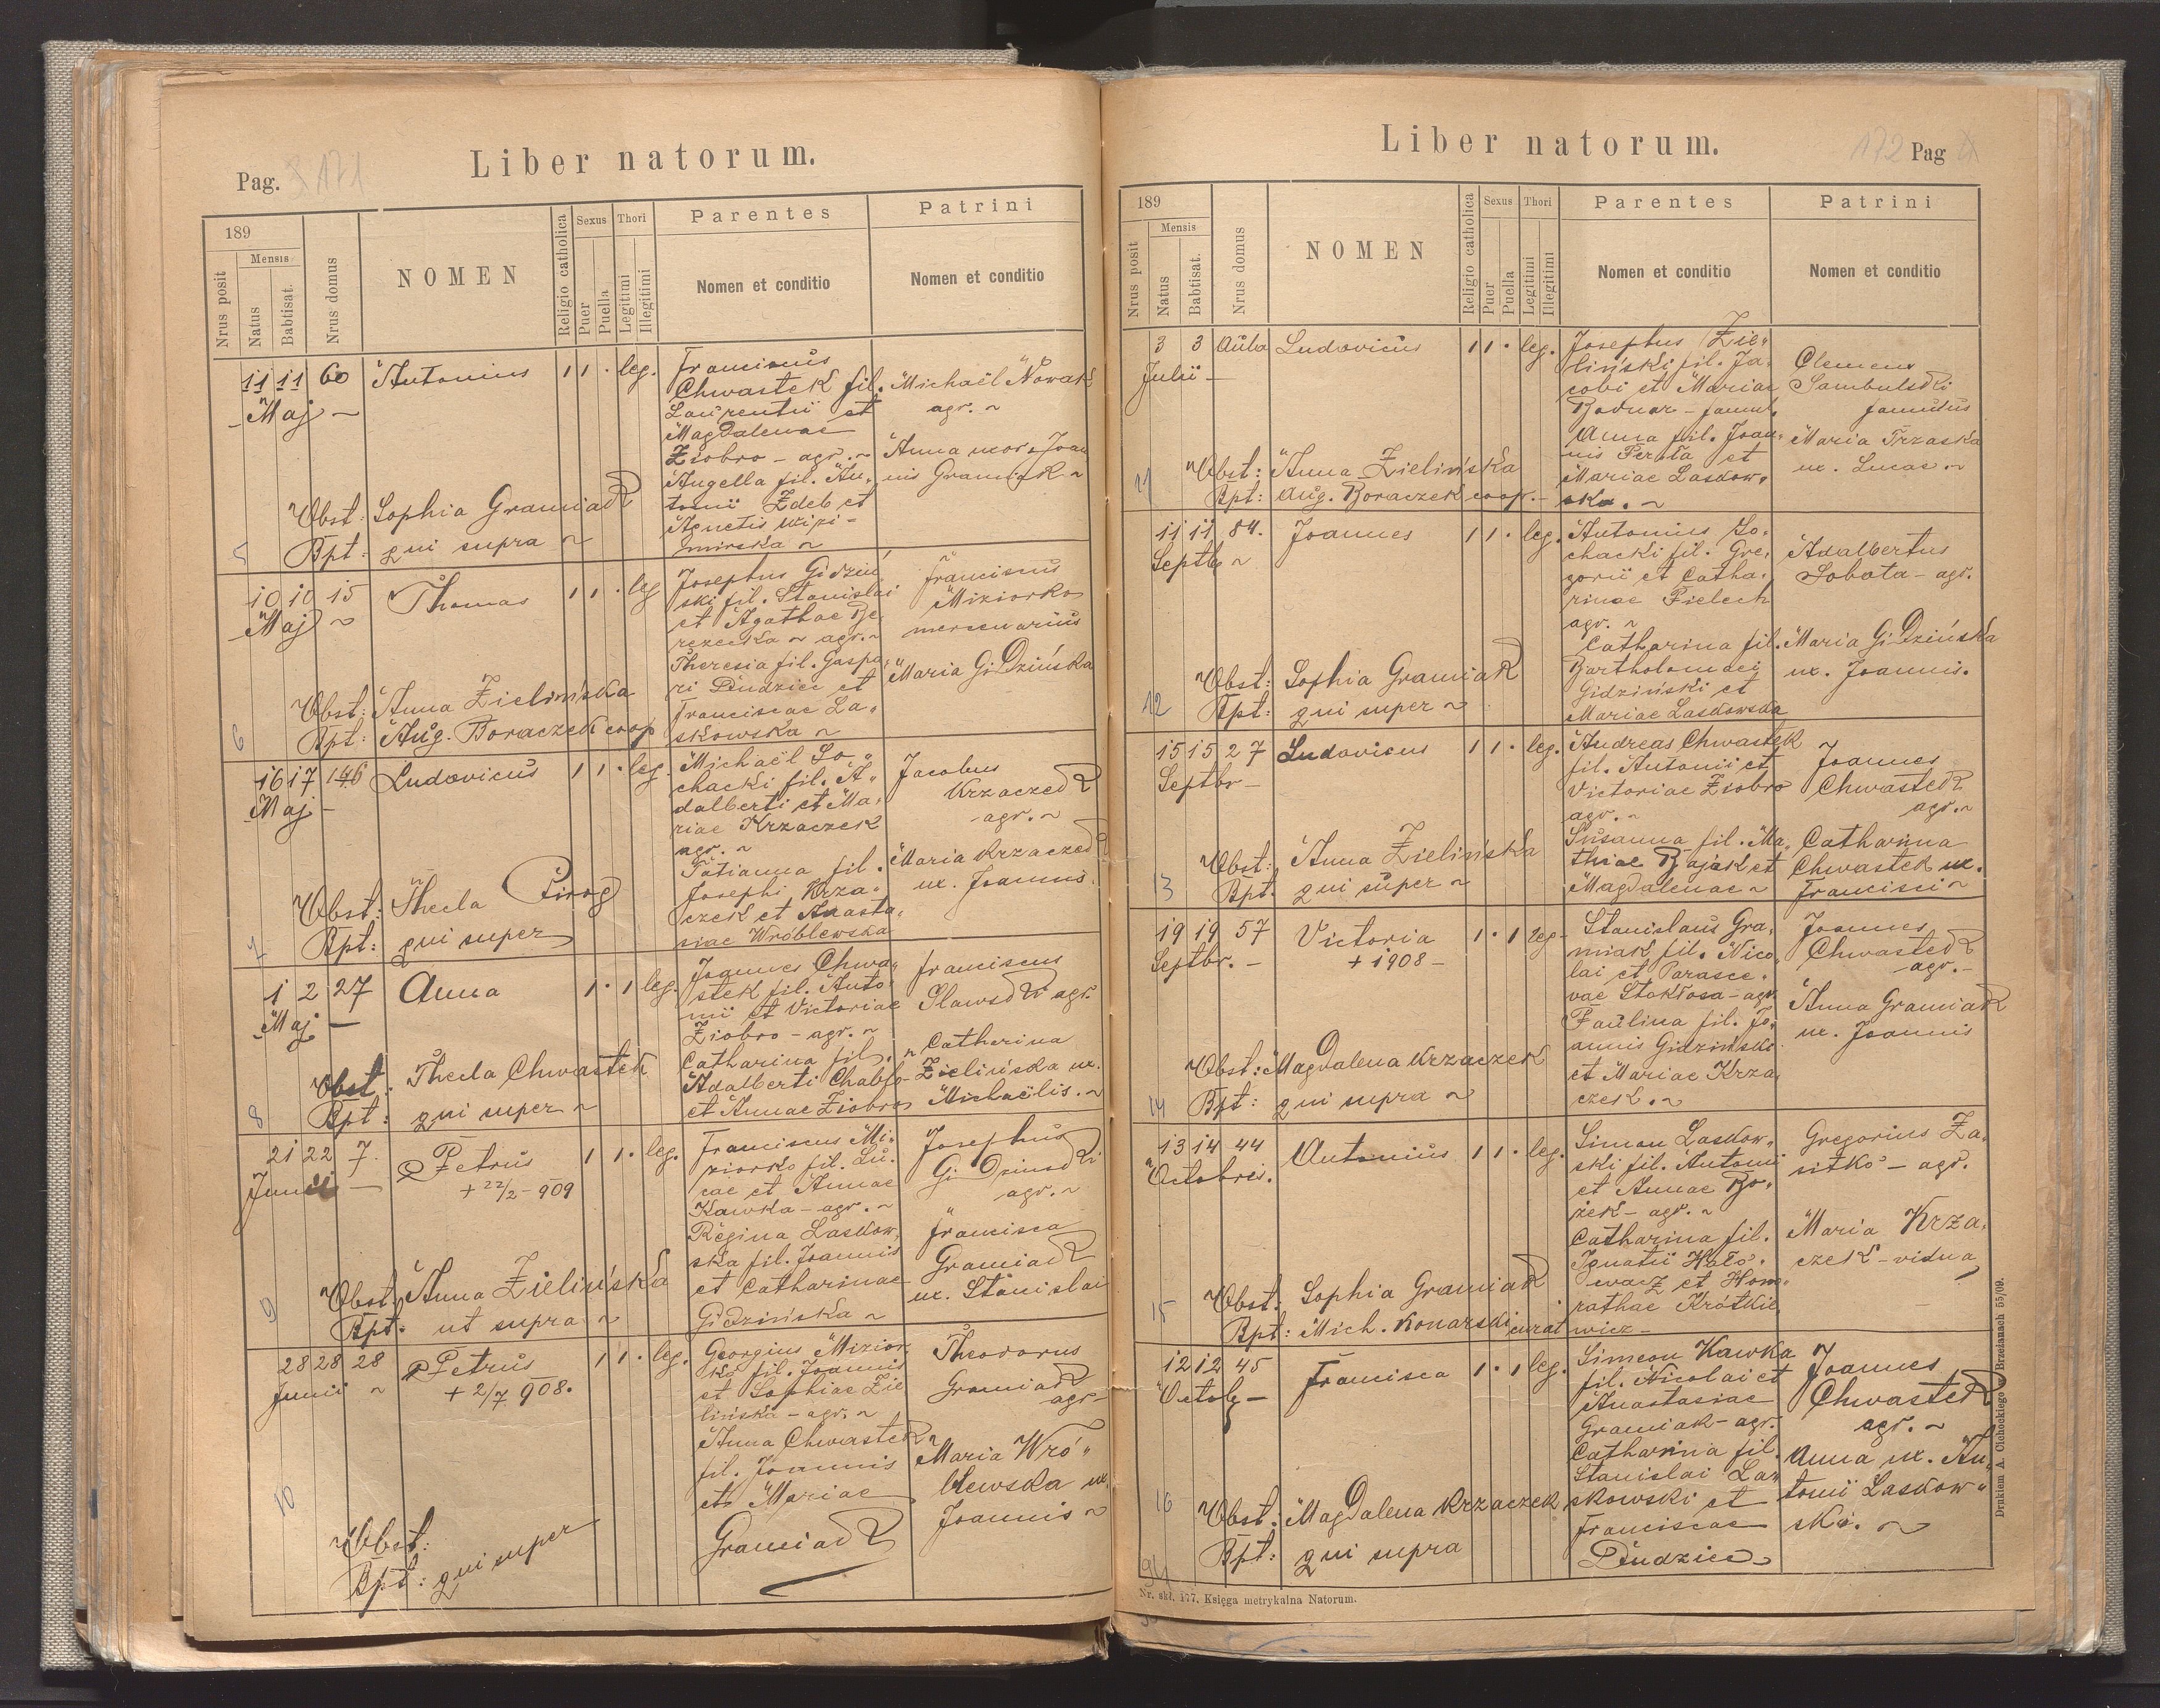 Pag. 171
Liber natorum.
189
Mensis
Nrus posit
Natus
Babtisat.
Nrus domus
NOMEN
Religio catholica
Sexus
Puer
Puella
Thori
Legitimi
Illegitimi
Parentes
Nomen et conditio
Patrini
Nomen et conditio
5
11 11 60 Antonius 1 1 · leg.
Maj –
Franciscus
Chwastek fil.
Laurentii et
Magdalenae
Ziobro – agr. ~
Angella fil. An,
tonii Zdeb et
Agnetis
Michaël Nowak
agr. ~
Anna uxor Joan
nis Gramiak ~
Obst: Sophia Gramiak
Bpt: qui supra ~
6
10 10 15 Thomas 1 1 · leg
Maj ~
Josephus Gidziń
ski fil. Stanislai
et Agathae Be,
rezecka ~ agr. ~
Theresia fil. Gaspa,
ri Dudzic et
Franciscae La,
skowska ~
Franciscus
Miziorko
mercenarius
Maria Gidzińska
Obst: Anna Zielińska
Bpt: Aug. Boraczek coop
7
16 17 146 Ludovicus 1 1 · leg.
Maj –
Michaël So,
chacki fil. A,
dalberti et Ma,
riae Krzaczek
agr. ~
Tatianna fil.
Josephi Krza,
czek et Anasta,
siae Wróblewska
Jacobus
Krzaczek
agr. ~
Maria Krzaczek
ux. Joannis.
Obst: Thecla Pirog
Bpt: qui super
8
1 2 27 Anna 1 · 1 leg.
Maj –
Joannes Chwa,
stek fil. Anto,
nii et Victoriae
Ziobro – agr. ~
Catharina fil.
Adalberti
et Annae Ziobro
Franciscus
Slawski agr.
Catherina
Zielińska ux.
Michaëlis. ~
Obst: Thecla Chwastek
Bpt: qui super ~
9
21 22 7. Petrus 1 1 · leg.
Junii – + 22/2 – 909
Franciscus Mi,
ziorko fil. Lu,
cae et Annae
Kawka – agr. ~
Regina Laskow,
ska fil. Joannis
et Catharinae
Gidzińska ~
Josephus
Gidzinski
agr. ~
Francisca
Gramiak
ux. Stanislai
Obst. Anna Zielińska
Bpt: ut supra ~
10
28 28 28 Petrus 1 1 · leg.
Junii ~ + 2/7 908.
Georgius Mizior
ko fil. Joannis
et Sophiae Zie
lińska – agr. ~
Anna Chwastek
fil. Joannis
et Mariae
Gramiak
Theodorus
Gramiak
agr –
Maria Wró,,
blewska ux.
Joannis ~
Obst:
Bpt: qui super
Liber natorum.
172 Pag
189
Mensis
Nrus posit
Natus
Babtisat.
Nrus domus
NOMEN
Religio catholica
Sexus
Puer
Puella
Thori
Legitimi
Illegitimi
Parentes
Nomen et conditio
Patrini
Nomen et conditio
11
3 3 Aula Ludovicus 1 1 · leg.
Julii –
Josephus Zie,,
liński fil. Ja,
cobi et Mariae
Bodnar – famul.
Anna fil. Joan,
nis Perata et
Mariae Laskow,
ska. ~
Clemens
Sambulski
famulus
Maria Trzaska
ux. Lucae ~
Obst: Anna Zielińska
Bpt: Aug. Boraczek coop. –
12
11 11 84. Joannes 1 1 · leg.
Septb ~
Antonius So,
chacki fil. Gre,
gorii et Catha,
rinae Pielech
agr. ~
Catharina fil.
Bartholomaei
Gidziński et
Mariae Laskowska
Adalbertus
Sobota – agr.
Maria Gidzińska
ux. Joannis.
Obst: Sophia Gramiak
Bpt: qui super ~
13
15 15 27 Ludovicus 1 1 · leg.
Septbr –
Andreas Chwastek
fil. Antonii et
Victoriae Ziobro
agr. ~
Susanna fil. Ma,
thiae Bajak et
Magdalenae ~
Joannes
Chwastek
agr. ~
Catharina
Chwastek ux.
Francisci ~
Obst: Anna Zielińska
Bpt. qui super ~
14
19 19 57 Victoria 1 · 1 leg –
Septbr. – + 1908 –
Stanislaus Gra,
miak fil. Nico,
lai et Parasce,
vae Stokłosa – agr.
Paulina fil. Jo,
annis Gidzinski
et Mariae Krza,
czek. ~
Joannes
Chwastek
agr. –
Anna Gramiak
ux. Joannis
Obst: Magdalena Krzaczek
Bpt: qui supra ~
15
13 14 44 Antonius 1 1 · leg.
Octobris.
Simon Laskow,
ski fil. Antonii
et Annae Bo,
żek – agr. ~
Catharina fil.
Ignatii Hało,
wacz et Hono,
rathae Krótkie
wicz –
Gregorius Za,
sitko – agr.
Maria Krza,
czek – vidua
Obst. Sophia Gramiak
Bpt: Mich. Konarski curat
16
12 12 45 Francisca 1 · 1 leg.
Octob –
Simeon Kawka
fil. Nicolai et
Anastasiae
Gramiak – agr.
Catharina fil.
Stanislai La,,
skowski et
Franciscae
Dudzic
Joannes
Chwastek
agr. ~
Anna ux. An,
tonii Laskow,,
ski. ~
Obst: Magdalena Krzaczek
Bpt: qui supra
94
Nr. skł. 177. Księga metrykalna Natorum.
Drukiem A. Olchockiego w Brzeżanach 55/09.